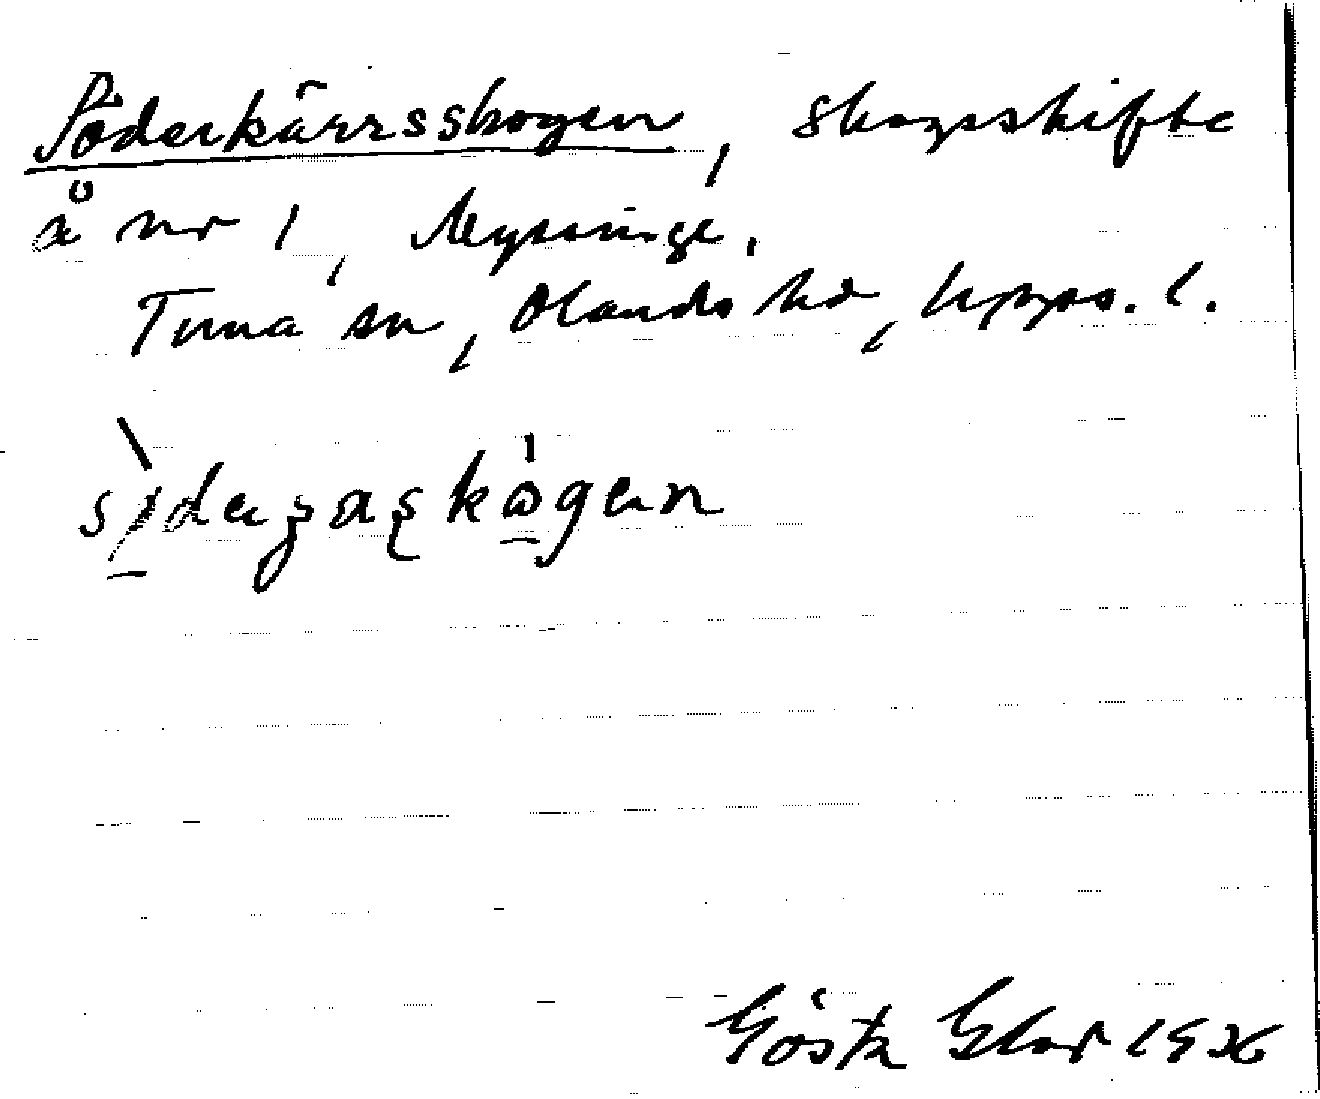 Söderkärrsskogen, skogsskifte
å nr 1, Myssinge.
Tuna sn, Olands hd, Upps. l.
Gösta Elor 1936